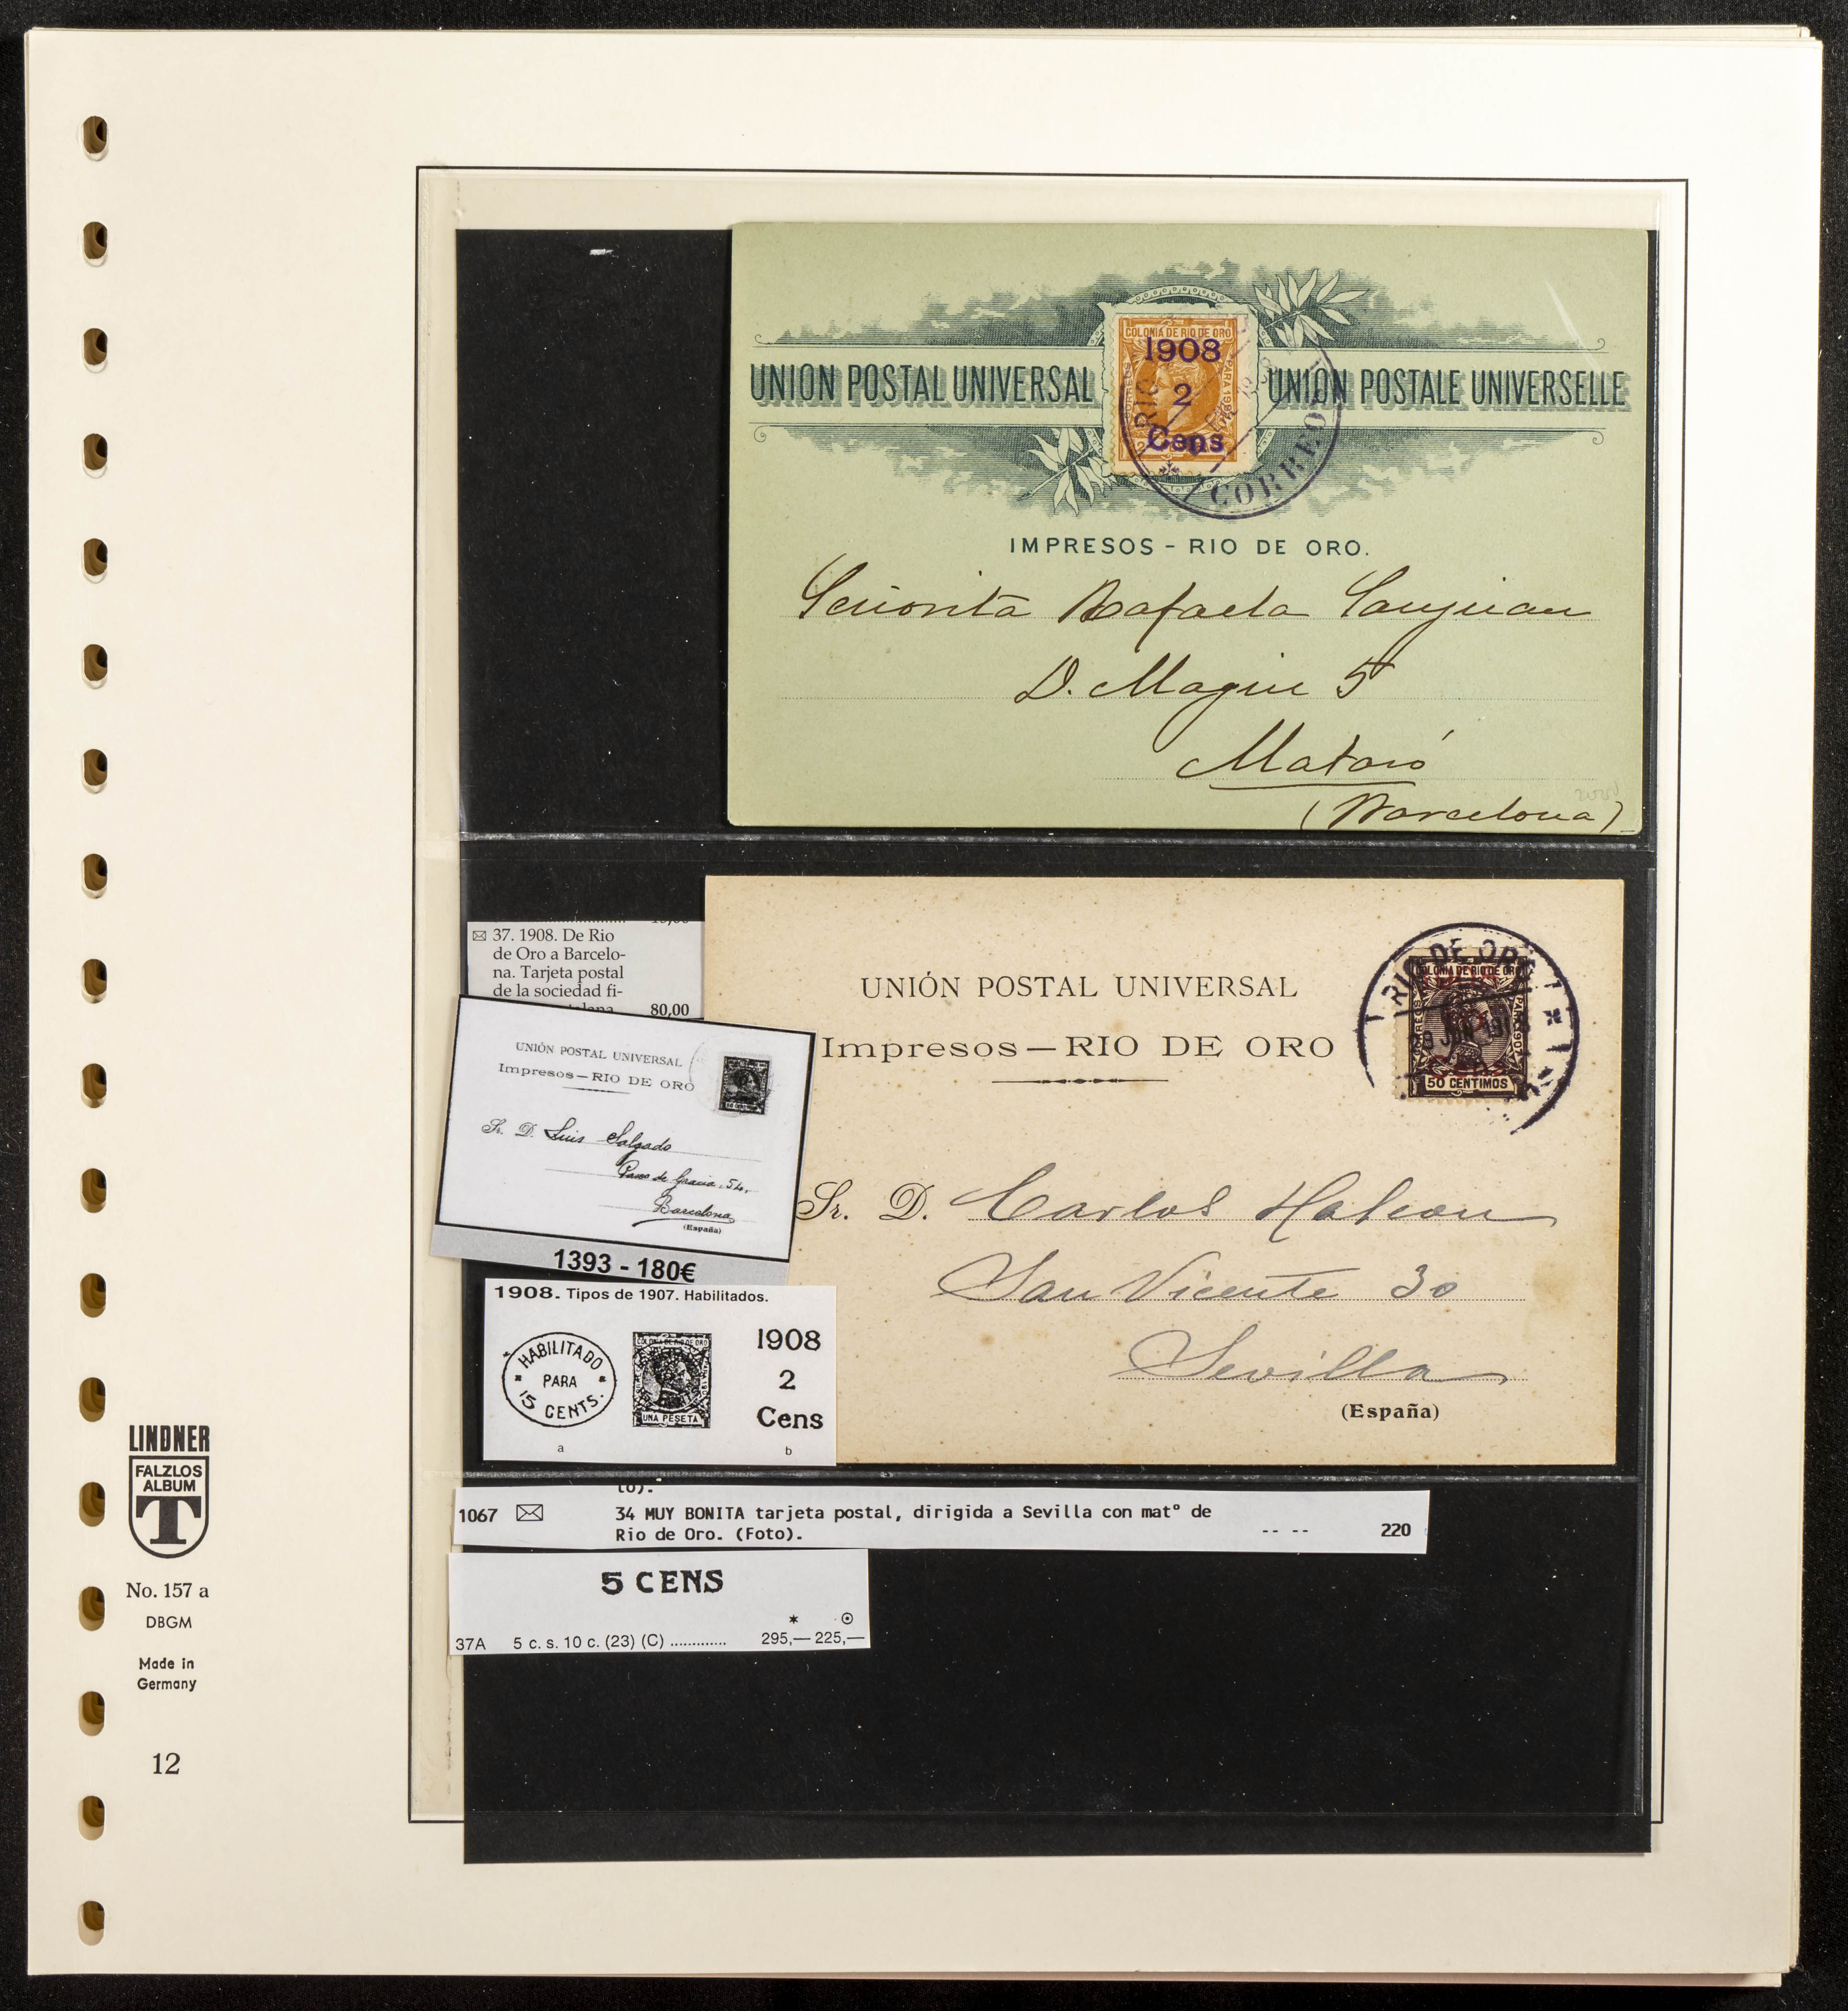 UNION POSTAL UNIVERSAL
UNION POSTALE UNIVERSELLE
COLONIA DE RIO DE ORO
1908
2
Cens
RIO
CORREO
IMPRESOS - RIO DE ORO.
Señorita Rafaela Sanjuan
D. Magin 5
Mataró
(Barcelona)
37. 1908. De Rio
de Oro a Barcelo-
na. Tarjeta postal
de la sociedad fi-
80,00
UNIÓN POSTAL UNIVERSAL
Impresos — RIO DE ORO
Sr. D. Luis Salgado
Paseo de Gracia, 54,
Barcelona
(España)
1393 - 180€
1908. Tipos de 1907. Habilitados.
HABILITADO
PARA
15 CENTS.
COLONIA DE RIO DE ORO
UNA PESETA
1908
2
Cens
a
b
UNIÓN POSTAL UNIVERSAL
Impresos — RIO DE ORO
RIO DE ORO
COLONIA DE RIO DE ORO
CORREOS
PARA 1907
50 CENTIMOS
Sr. D. Carlos Halcon
San Vicente 30
Sevilla
(España)
1067 34 MUY BONITA tarjeta postal, dirigida a Sevilla con matº de
Rio de Oro. (Foto). -- -- 220
5 CENS
37A 5 c. s. 10 c. (23) (C) ............. 295,— 225,—
LINDNER
FALZLOS
ALBUM
T
No. 157 a
DBGM
Made in
Germany
12